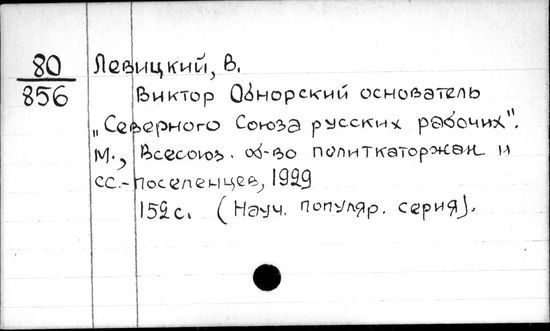 80 Левицкий, В.
856 Виктор Обнорский основатель
„Северного Союза русских рабочих".
М., Всесоюз. об-во политкаторжан и
сс.-поселенцев, 1929
152 с. (Науч. популяр. серия).